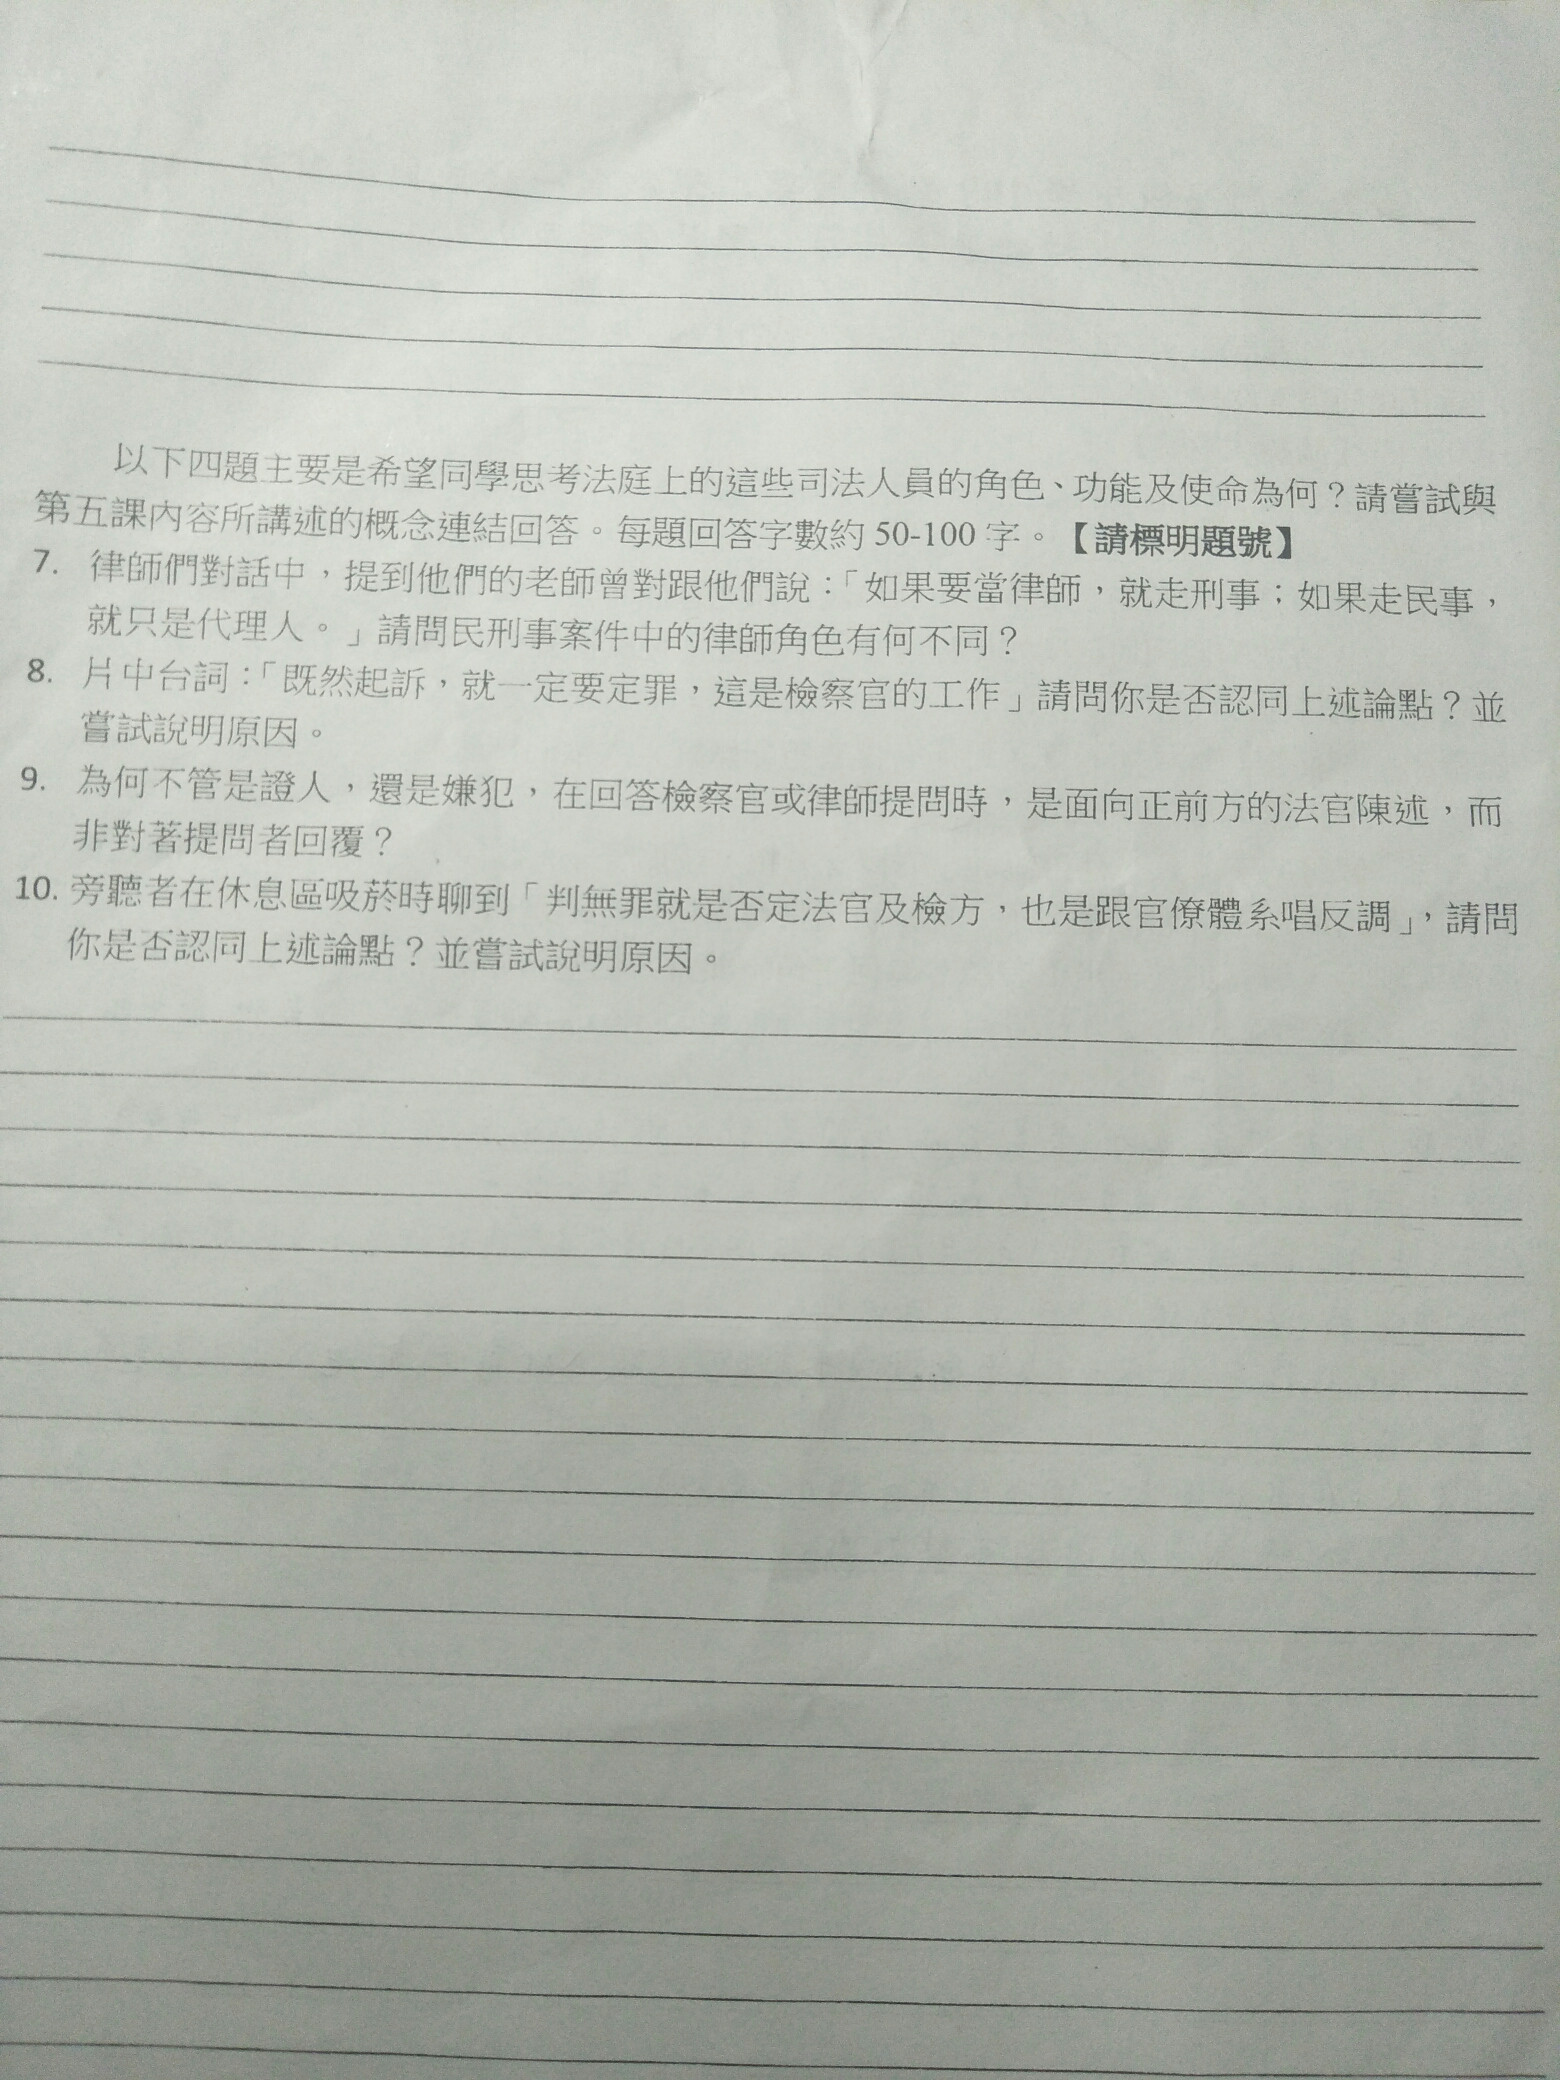 以下四題主要是希望同學思考法庭上的這些司法人員的角色、功能及使命為何？請嘗試與
第五課內容所講述的概念連結回答。每題回答字數約 50-100 字。【請標明題號】
7. 律師們對話中，提到他們的老師曾對跟他們說：「如果要當律師，就走刑事；如果走民事，
就只是代理人。」請問民刑事案件中的律師角色有何不同？
8. 片中台詞：「既然起訴，就一定要定罪，這是檢察官的工作」請問你是否認同上述論點？並
嘗試說明原因。
9. 為何不管是證人，還是嫌犯，在回答檢察官或律師提問時，是面向正前方的法官陳述，而
非對著提問者回覆？
10. 旁聽者在休息區吸菸時聊到「判無罪就是否定法官及檢方，也是跟官僚體系唱反調」，請問
你是否認同上述論點？並嘗試說明原因。